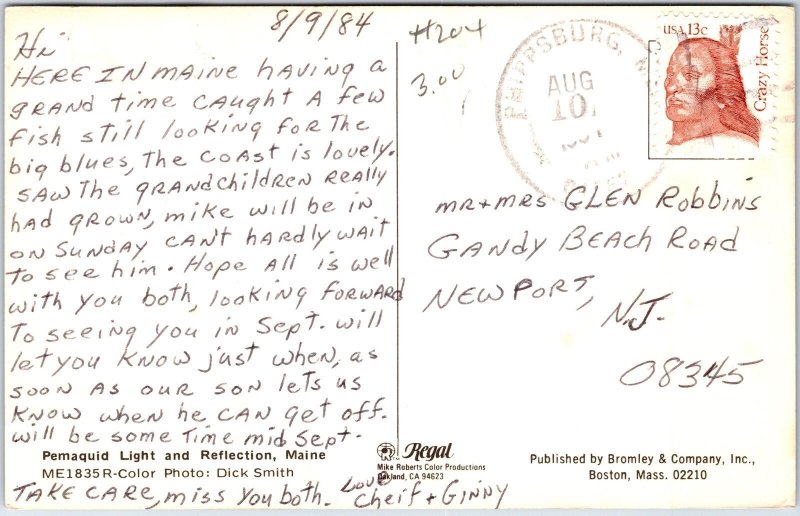 8/9/84
Hi
HERE IN MAINE HAVING A
GRAND TIME CAUGHT A FEW
FISH STILL LOOKING FOR THE
BIG BLUES, THE COAST IS LOVELY.
SAW THE GRANDCHILDREN REALLY
HAD GROWN, MIKE WILL BE IN
ON SUNDAY CAN'T HARDLY WAIT
TO SEE HIM. HOPE ALL IS WELL
WITH YOU BOTH, LOOKING FORWARD
TO SEEING YOU IN SEPT. WILL
LET YOU KNOW JUST WHEN, AS
SOON AS OUR SON LETS US
KNOW WHEN HE CAN GET OFF.
WILL BE SOME TIME MID SEPT.
Pemaquid Light and Reflection, Maine
ME1835R-Color Photo: Dick Smith
TAKE CARE, MISS YOU BOTH. LOVE
CHEIF + GINNY
#204
3.00
PHIPPSBURG,
AUG
10
USA 13c
Crazy Horse
MR + MRS GLEN ROBBINS
GANDY BEACH ROAD
NEWPORT,
N.J.
08345
Regal
Mike Roberts Color Productions
Oakland, CA 94623
Published by Bromley & Company, Inc.,
Boston, Mass. 02210